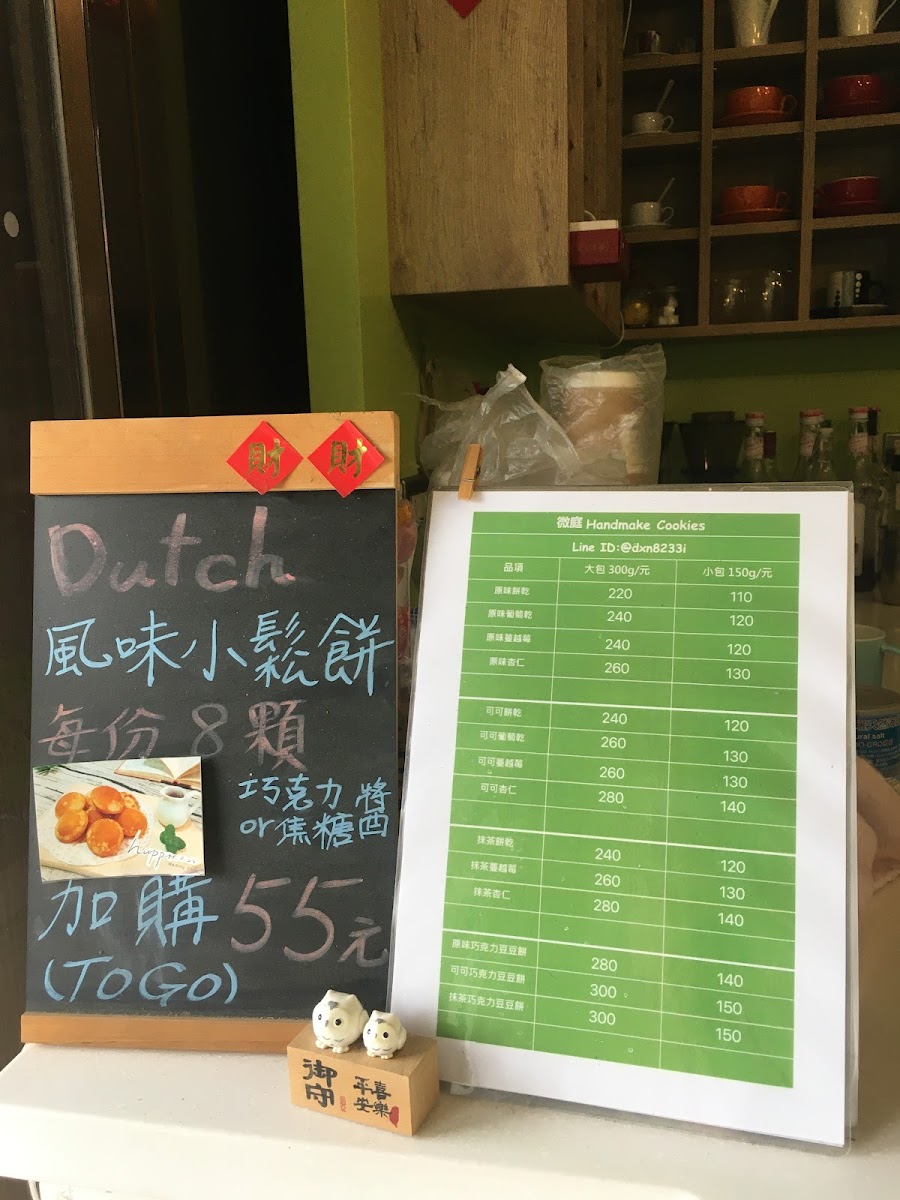 財 財
Dutch
風味小鬆餅
每份8顆
巧克力醬
or焦糖
加購55元
(TOGO)
御守
平安
喜樂
微庭 Handmake Cookies
Line ID:@dxn8233i
品項 大包 300g/元 小包 150g/元
原味餅乾 220 110
原味葡萄乾 240 120
原味蔓越莓 240 120
原味杏仁 260 130
可可餅乾 240 120
可可葡萄乾 260 130
可可蔓越莓 260 130
可可杏仁 280 140
抹茶餅乾 240 120
抹茶蔓越莓 260 130
抹茶杏仁 280 140
原味巧克力豆豆餅 280 140
可可巧克力豆豆餅 300 150
抹茶巧克力豆豆餅 300 150